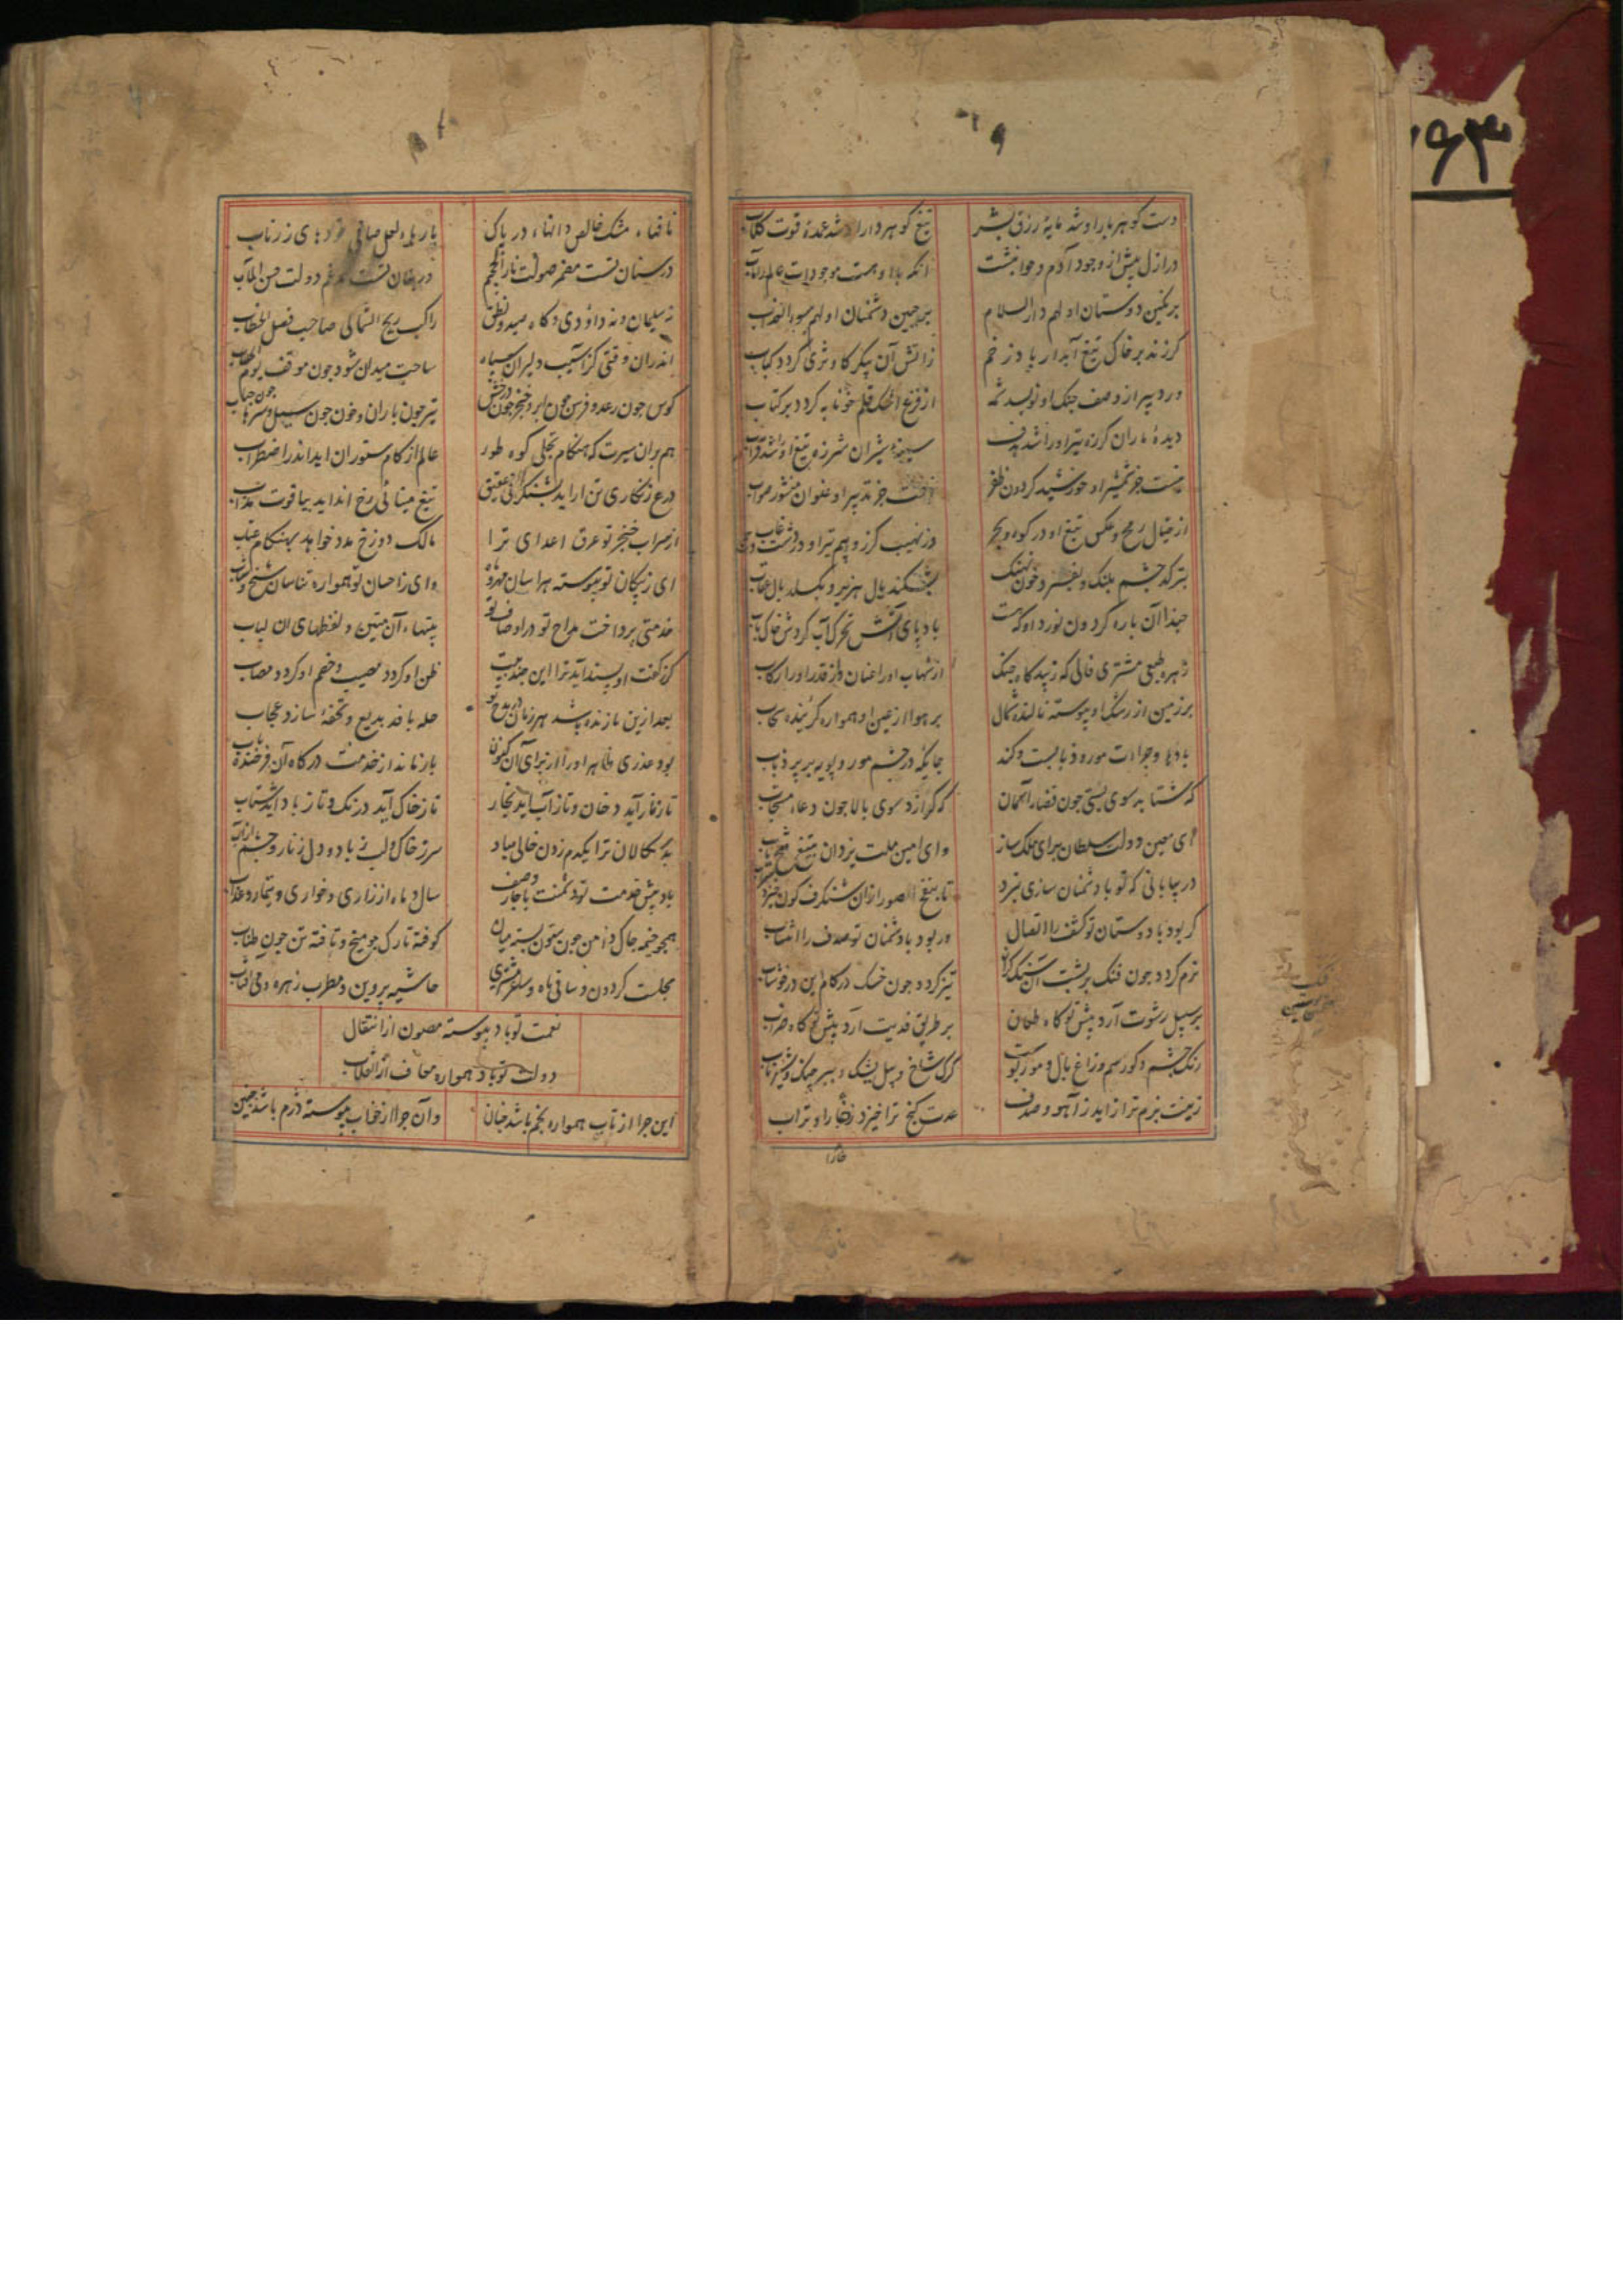 دست کوهر بار او شد مایهٔ رزق بشر
تیغ کوهر دار او شد عمدهٔ قوت کلاب
در ازل پیش از وجود آدم و حوا بنشت
انکه بالا و همت موجودات عالم را مآب
بر نکین دوستان او لهم دار السلام
بر جبین دشمنان او لهم سوء العذاب
کر زند بر خاک تیغ آبدار یاد زخم
ز اتش آن پیکر کاو ثری کردد کباب
ور دبیر از وصف جنک او نویسد نکته
از فزع اشک قلم خونابه کردد بر کتاب
دیدهٔ ماران کرزه تیر او را شد هدف
سینهٔ شیران شرزه تیغ او را شد قراب
نیست جز شمشیر او خورشید کردون ظفر
نیست جز تدبیر او عنوان منشور صواب
از خیال رمح و عکس تیغ او در کوه و بحر
وز نهیب کرز و سهم تیر او در دشت و غاب
بترکد چشم پلنک و بفسرد خون نهنک
بشکند یال هزبر و بکسلد بال عقاب
حبذا آن باره کردون نورد او که هست
باد پای آتش تحرک آب کردش خاک تاب
زهره طبعی مشتری فالی که زیبد کاه جنک
از شهاب او را عنان و از قدر او را رکاب
بر زمین از رشک او پیوسته نالنده شمال
بر هوا از عین او همواره کرینده سحاب
جایکه در چشم مور و پویه بر پر ذباب
که شتابد سوی پستی چون قضاء آسمان
که کرازد سوی بالا جون دعاء مستجاب
ای معین دولت سلطان برای ملک ساز
وای امین ملت یزدان بتیغ فتح یاب
در بیابانی که تو با دشمنان سازی نبرد
کر بود با دوستان تو کشف را اتصال
ور بود با دشمنان تو صدف را انتساب
نرم کردد جون فنک بر پشت آن سنک کران
تیز کردد جون خسک در کام این در خوشاب
بر سبیل رشوت آرد پیش تو کاه طعان
بر طریق فدیت آرد پیش تو کاه ضراب
رنک چشم و کور سم و زاغ بال و مور کوبت
کرک شاخ و پیل یشک و ببر جنک و شیر ناب
زینت بزم ترا زاید ز آهو و صدف
عدت کنج ترا خیزد ز خارا و تراب
خارا
نافهاء مشک خالص دانهاء در پاک
پارهاء لعل صافی خردهای زر ناب
در سنان تست مضمر صولت نار الجحیم
در بنان تست مدغم دولت حسن المآب
نه سلیمان و نه داؤدی و کاه صید و نطق
راکب ریح الشمالی صاحب فصل الخطاب
اندران وقتی کز آسیب دلیران سپاه
ساحت میدان شود جون موقف یوم الحساب
کوس جون رعد و فرس جون ابر و خنجر جون درخش
تیر جون باران و خون جون سیل و سرها جون حباب
هم بران سیرت که هنکام تجلی کوه طور
عالم از کام ستوران اید اندر اضطراب
درع زنکاری تن اراید بشنکرفی عقیق
تیغ مینائی رخ انداید بیاقوت مذاب
از ضراب خنجر تو عرق اعدای ترا
مالک دوزخ مدد خواهد بهنکام عقاب
ای ز پیکان تو پیوسته هراسان مهر و ماه
وای ز احسان تو همواره تناسان شیخ و شاب
خدمتی پرداخت مداح تو در اوصاف تو
بیتهاء آن متین و لفظهای ان لباب
کر ز کفت او پسند آید ترا این جند بیت
ظن او کردد مصیب و خصم او کردد مصاب
بعد ازین تا زنده باشد هر زمان در مدح تو
حله بافد بدیع و تحفهٔ سازد عجاب
بود عذری ظاهر او را ار ز برای آن کنون
باز ماند از خدمت درکاه آن فرخنده باب
تا ز نار آید دخان و تا ز آب اید بخار
تا ز خاک آید درنک و تا ز باد اید شتاب
بد سکالان ترا یکدم زدن خالی مباد
سر ز خاک و لب ز باد و دل ز نار و چشم از آب
باد پیش خدمت تو دشمنت با جار وصف
سال و ماه از زاری و خواری و تیمار و عذاب
همجو خیمه جاک دامن جون ستون بسته میان
کوفته تارک جو میخ و تافته تن جون طناب
مجلست کردون و ساقی ماه و ساغر مشتری
حاشیه پروین و مطرب زهره و می افتاب
نعمت تو باد پیوسته مصون از انتقال
دولت تو باد همواره معاف از انقلاب
این جرا از تاب همواره بخم باشد جنان
وآن جرا از خواب پیوسته دژم باشد جنین